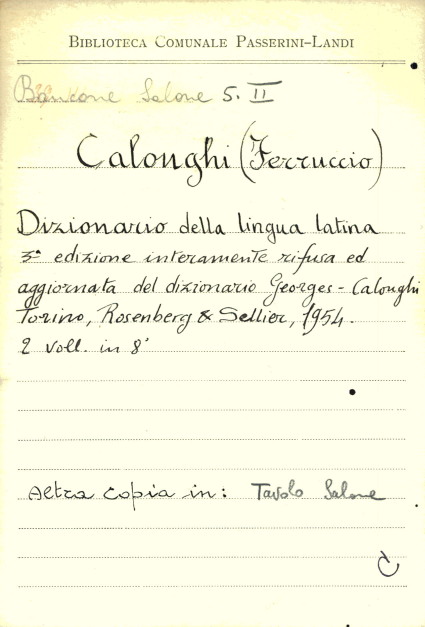 BIBLIOTECA COMUNALE PASSERINI-LANDI
Bancone Salone 5. II
Calonghi (Ferruccio)
Dizionario della lingua latina
3ª edizione interamente rifusa ed
aggiornata del dizionario Georges - Calonghi
Torino, Rosenberg & Sellier, 1954.
2 voll. in 8°
Altra copia in: Tavolo Salone
C